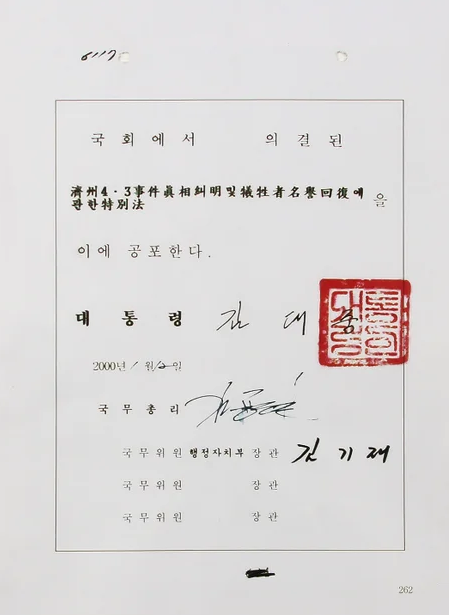 6117
국회에서 의결된
濟州4·3事件眞相糾明및犧牲者名譽回復에
관한特別法 을
이에 공포한다.
대통령 김대중
2000년 1월 12일
국무총리
국무위원 행정자치부 장관 김기재
국무위원 장관
국무위원 장관
262